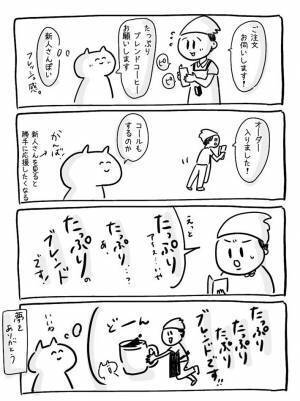 ご注文
お伺いします!
たっぷり
ブレンドコーヒー
お願いします
新人さんぽい
フレッシュ感。
オーダー
入りました!
コール
するのか
がんば
新人さんを見ると
勝手に応援したくなる
えっと
たっぷり
アイス…いや
たっ…
あ…
たっぷり
たっぷりの
ブレンド
です!!
たっぷり
たっぷり
たっぷり
ブレンドです!!
どーん
いいね
夢を
ありがとう